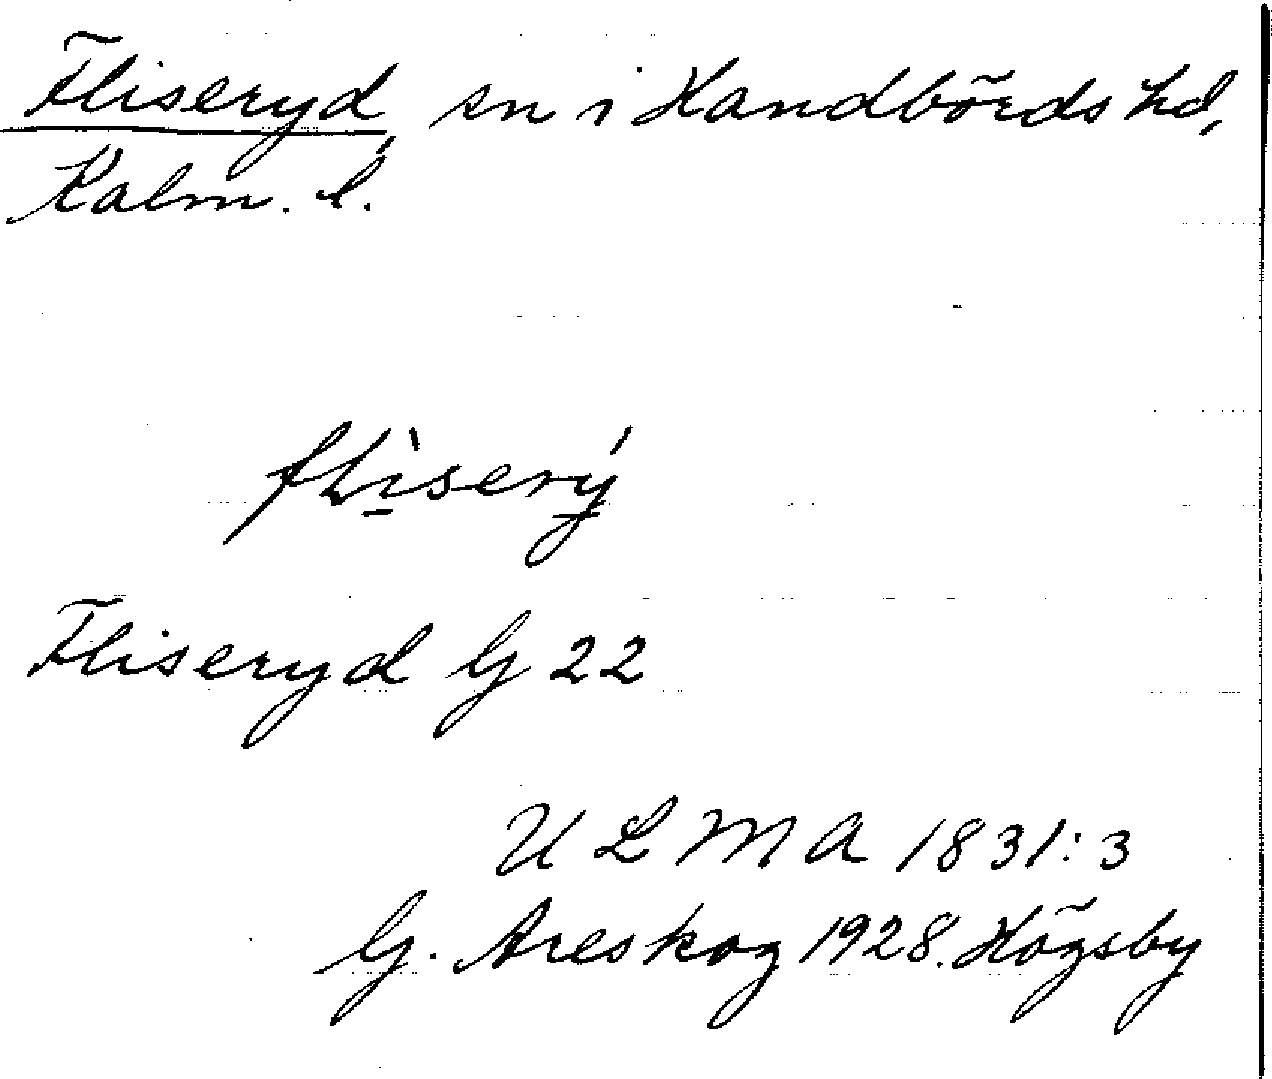 Fliseryd, sn i Handbörds hd,
Kalm. l.
flìserý
Fliseryd G 22
ULMA 1831:3
G. Areskog 1928. Högsby